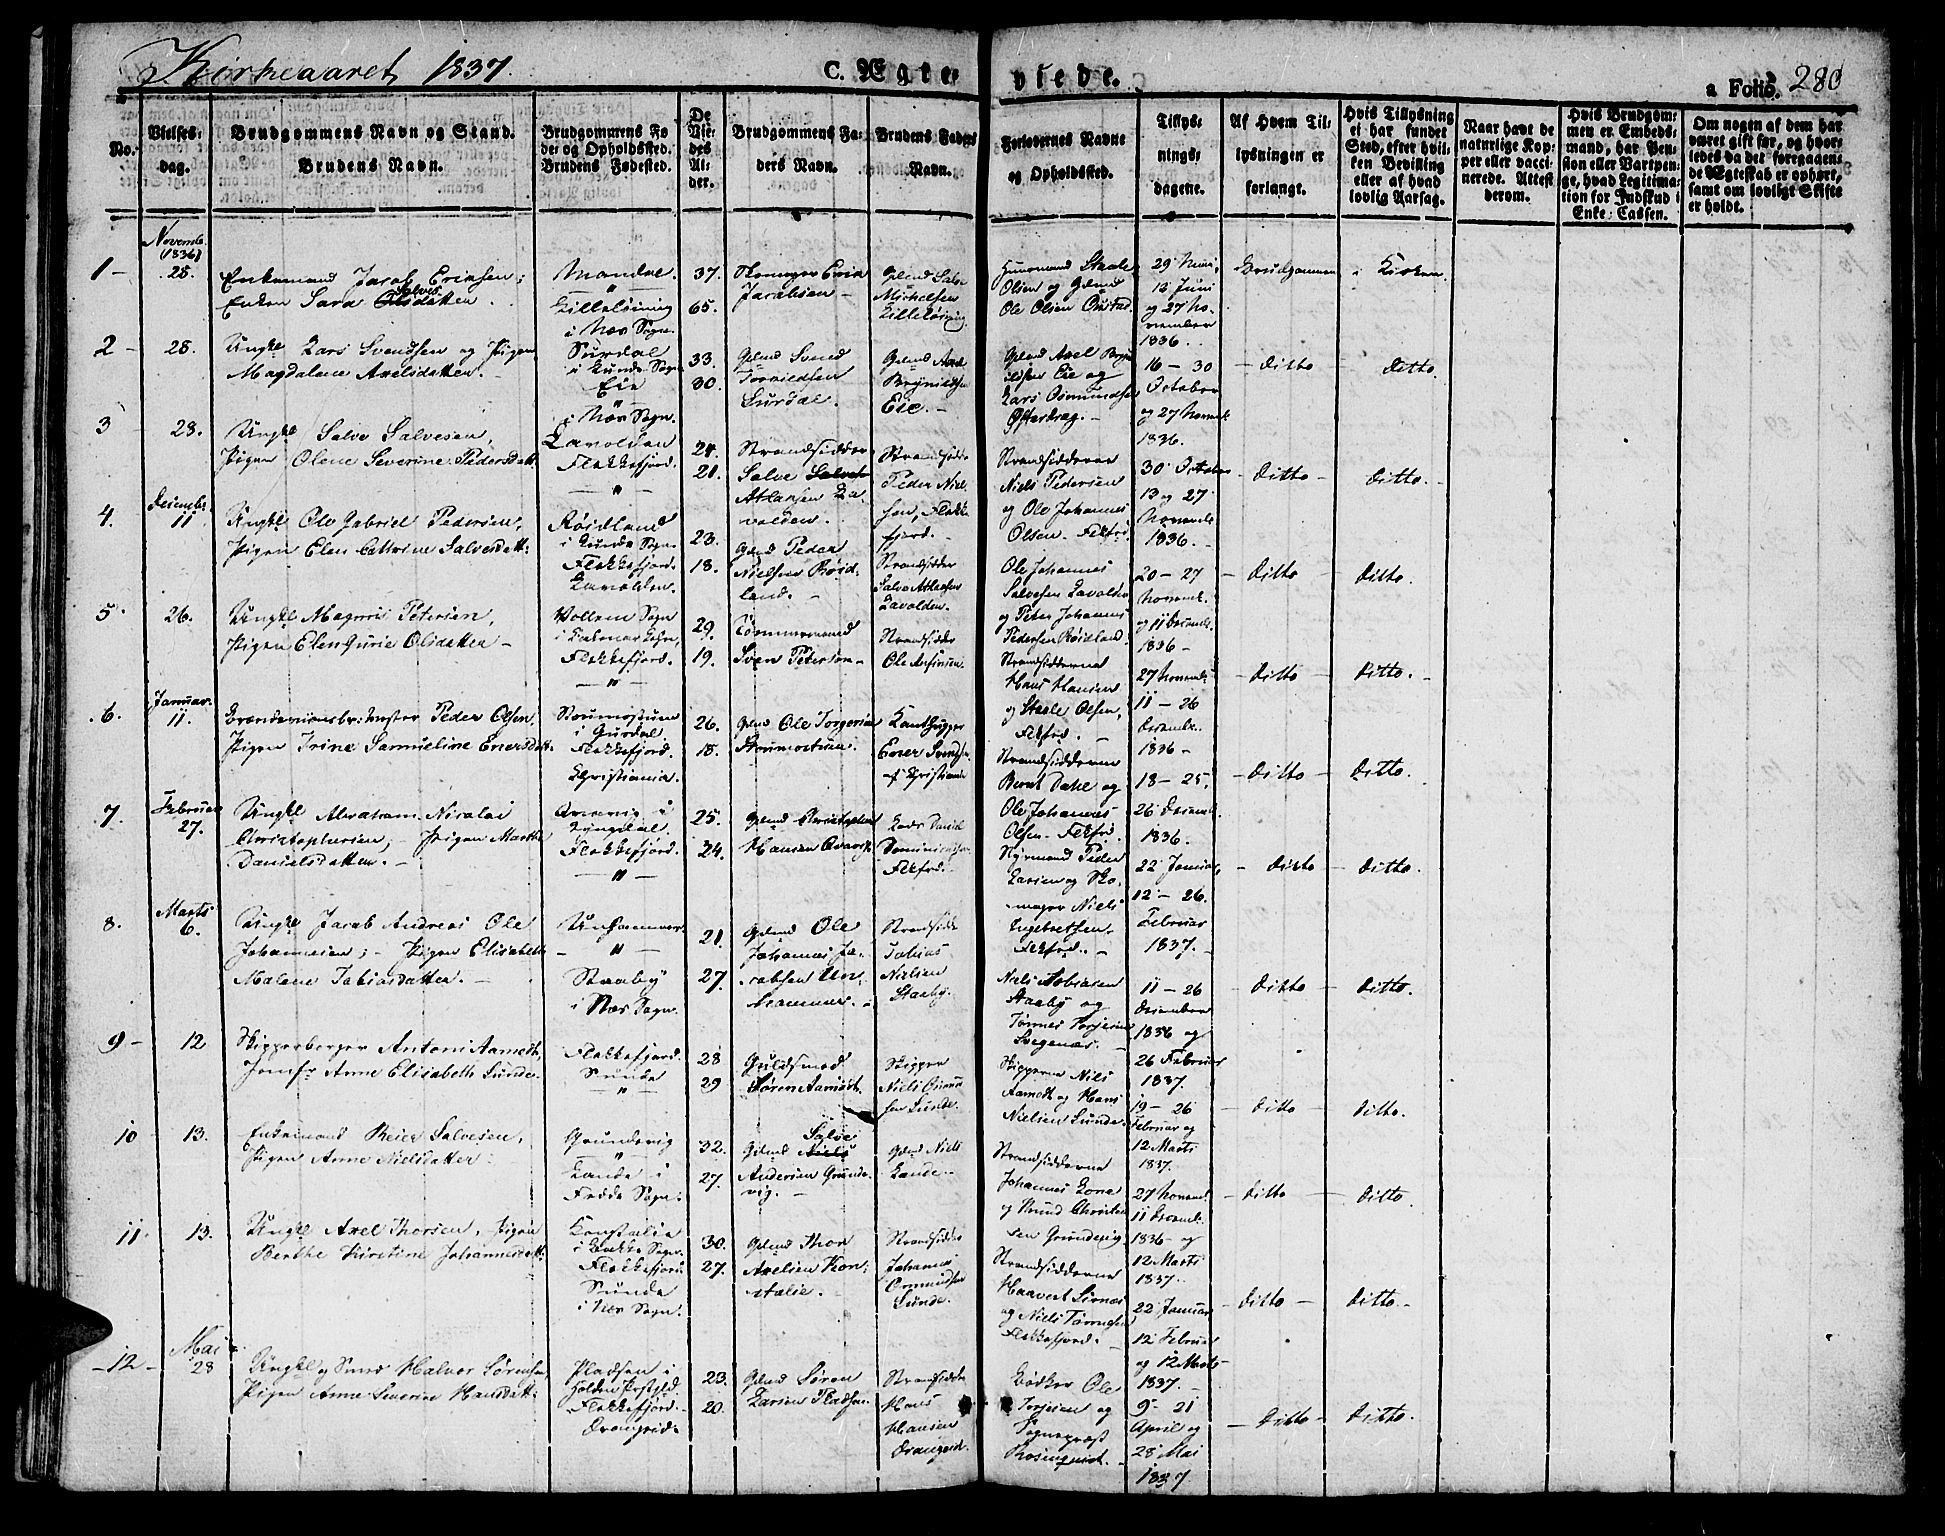 Kirkeaaret 1837.
C. Ægte-
viede.
a Folio. 280
No.
Vielses-
dag.
Brudgommens Navn og Stand.
Brudens Navn.
Brudgommens Fø
de- og Opholdssted.
Brudens Fødested.
De
Vie-
des
Al-
der.
Brudgommens Fa-
ders Navn.
Brudens Faders
Navn.
Forlovernes Navne
og Opholdssted.
Tillys-
nings-
dagene.
Af Hvem Til-
lysningen er
forlangt.
Hvis Tillysning
ei har fundet
Sted, efter hvil-
ken Bevilling
eller af hvad
lovlig Aarsag.
Naar havt de
naturlige Kop-
per eller vacci-
nerede. Attest
derom.
Hvis Brudgom-
men er Embeds-
mand, har Pen-
sion eller Vartpen-
ge, hvad Legitima-
tion for Indskud i
Enke-Cassen.
Om nogen af dem har
været gift før, og hvor-
ledes da det foregaaen-
de Ægteskab er ophørt,
samt om lovligt Skifte
er holdt.
1 -
Novemb.
(1836)
28.
Enkemand Jacob Ericksen;
Enken Sara Salvesdatter.
Mandal.
Lilleløining
i Næs Sogn.
37.
65.
Eric
Jacobsen -
Gdmd Salve
Michelsen
Lilleløining
Huusmand Staale
Olsen og Gdmd
Ole Olsen
29 Mai,
12 Juni
og 27 No-
vember
1836.
Brudgommen i Kirken
2 -
28.
Ungkl Lars Svendsen og Pigen
Magdalene Axelsdatter. -
Surdal
i Lunde Sogn
Eie
i Næs Sogn.
33.
30.
Gdmd Svend
Torkildsen
Surdal.
Gdmd Axel
Brynildsen
Eie. -
Gdmd Axel Bryn
ildsen Eie og
Lars Osmundsen
16 - 30
October
og 27 Novemb
1836.
- ditto - ditto.
3
28.
Ungkl Salve Salvesen,
Pigen Olene Severine Pedersdatt:
Lavolden
Flekkefjord.
24.
21.
Strandsidder
Salve
Atlaksen La-
volden.
Strandsidder
Peder Niel-
sen, Flekke
fjord. -
Strandsidderne
Niels Pedersen
og Ole Johannes
Olsen. Flkfrd.
30 October
13 og 27
Novemb
1836. -
ditto - ditto.
4.
Decembr.
11
Ungkl Ole Gabriel Pedersen,
Pigen Elen Cathrine Salvesdatt:
Røidland
i Lunde Sogn
Flekkefjord.
Lavolden.
23.
18.
Gdmd Peder
Nielsen Røid-
land. -
Strandsidder
Salve Atlaksen
Lavolden.
Ole Johannes
Salvesen Lavolden
og Peter Johannes
Pedersen Røidland.
20 - 27
Novemb.
og 11 Decemb.
1836 -
ditto - ditto.
5.
26.
Ungkl Magnus Petersen,
Pigen Elen Gurie Olsdatter -
Vollem Sogn
i Calmar Lehn,
Flekkefjord.
29.
19.
Tømmermand
Sven Peterson -
Strandsidder
Ole Anfinsen.
Strandsidderne
Hans Hansen
og Staale Olsen,
Flkfrd. -
27 Novemb:
11 - 26
Decemb.
1836 -
ditto - ditto.
.6.
Januar.
11.
Peder Olsen,
Pigen Trine Samueline Enersdatt:
i
Flekkefjord.
Christiania.
26.
18.
Gdmd Ole Torgersen
Ener Svendsen
af Christiania
Strandsidderne
Bernt Dahl og
Ole Johannes
Olsen. Flkfrd.
18 - 25,
26 Decemb.
1836.
- ditto - ditto.
7.
Februar
27.
Ungkl Abraham Nicolai
Christophersen, - Pigen Marthe
Danielsdatter. -
i
Lyngdal.
Flekkefjord.
25.
24.
Gdmd Christopher
Hansen
Lods Daniel
Flkfrd. -
Styrmand Peder
Larsen og Sko-
mager Niels
Ingebretsen.
Flkfrd. -
22 Januar,
12 - 26.
Februar
1837. -
- ditto - ditto.
8.
Marts
6.
Ungkl Jacob Andreas Ole
Johannesen; - Pigen Elisabeth
Malene Tobiasdatter. -
Unhammer
Staaby
i Næs Sogn.
21.
27.
Gdmd Ole
Johannes Ja-
cobsen Un-
hammer. -
Strandsidder
Tobias
Nielsen
Staaby.
Niels Tobiasen
Staaby og
Tønnes Torjesen
11 - 26
December
1836 og
26 Februar
1837.
ditto - ditto.
9 -
12
Skipperborger Antoni Aamodt,
Jomfr Anne Elisabeth Sunde.
Flekkefjord.
Sunde
28
29
Guldsmed
Søren Aamodt.
Skipper
Niels
sen Sunde.
Skipperne Niels
Aamodt og Hans
Nielsen Sunde.
19 - 26
Februar og
12 Marts
1837.
ditto - ditto.
10
13.
Enkemand Reier Salvesen,
Pigen Anne Nielsdatter.
Grundevig
Lande i
Fedde Sogn.
32.
27.
Gdmd Salve
Andersen Grunde-
vig. -
Gdmd Niels
Lande. -
Strandsidderne
Johannes Lone
og Knud Christen
sen Grundevig
27 Novemb.
11 Decemb:
1836 og
12 Marts
1837.
ditto - ditto
11.
13.
Ungkl Axel Thorsen, Pigen
Berthe Kirstine Johannesdatt:
Konstalie
i Bakke Sogn.
Flekkefjord
Sunde
i Næs Sogn.
30.
27.
Gdmd Thor
Axelsen Kon-
stalie.
Strandsidder
Johannes
Sunde.
Strandsidderne
Haavert Sirnæs
og Niels Tønnesen
Flekkefjord. -
22 Januar
12 Februar
og 12 Marts
1837. -
- ditto - ditto. -
- 12 -
Mai
28
Ungkl og Smed Halvor Sørensen,
Pigen Anne Severine Hansdatt:
Pladsen i
Holden
Flekkefjord.
Drangeid.
23.
20.
Gdmd Søren
Larsen Pladsen.
Strandsidder
Hans
Hansen
Drangeid.
Bødker Ole
Torjesen og
Sogneprest
Rosenqvist.
9 - 21
April og
28 Mai
1837
- ditto - ditto.